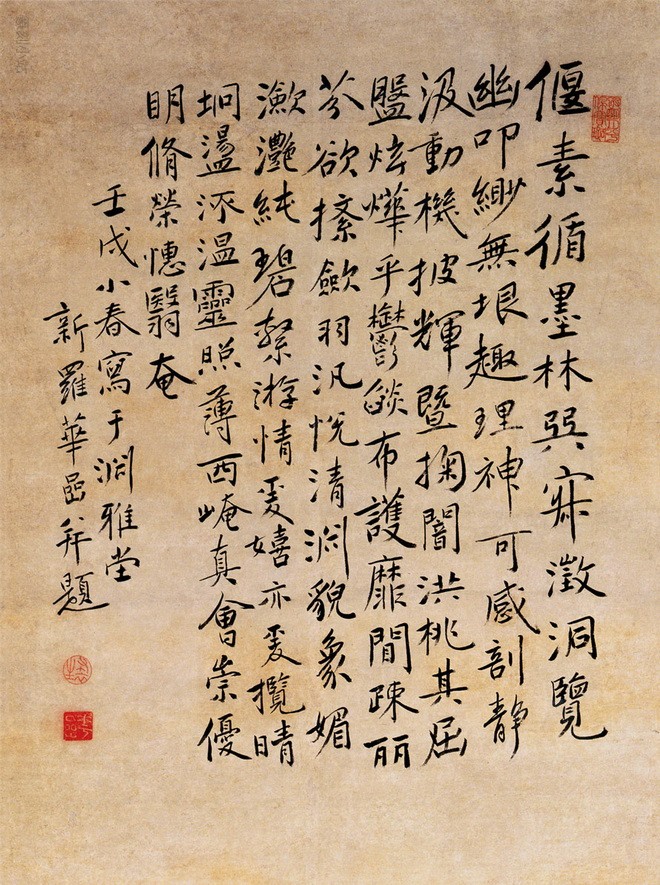 偃素循墨林巽寂澂洞覽
幽叩緲無垠趣理神可感剖靜
汲動機披輝暨掬闇洪桃其屈
盤炫燁乎鬱燄布護靡間疎丽
芬欲搽歛羽汎悅清淵貌象媚
瀲灩純碧縈游情爰嬉亦爰攬晴
坰盪流温靈照薄西崦真會崇優
明脩榮憓翳奄
壬戌小春寫于淵雅堂
新羅華嵒并題